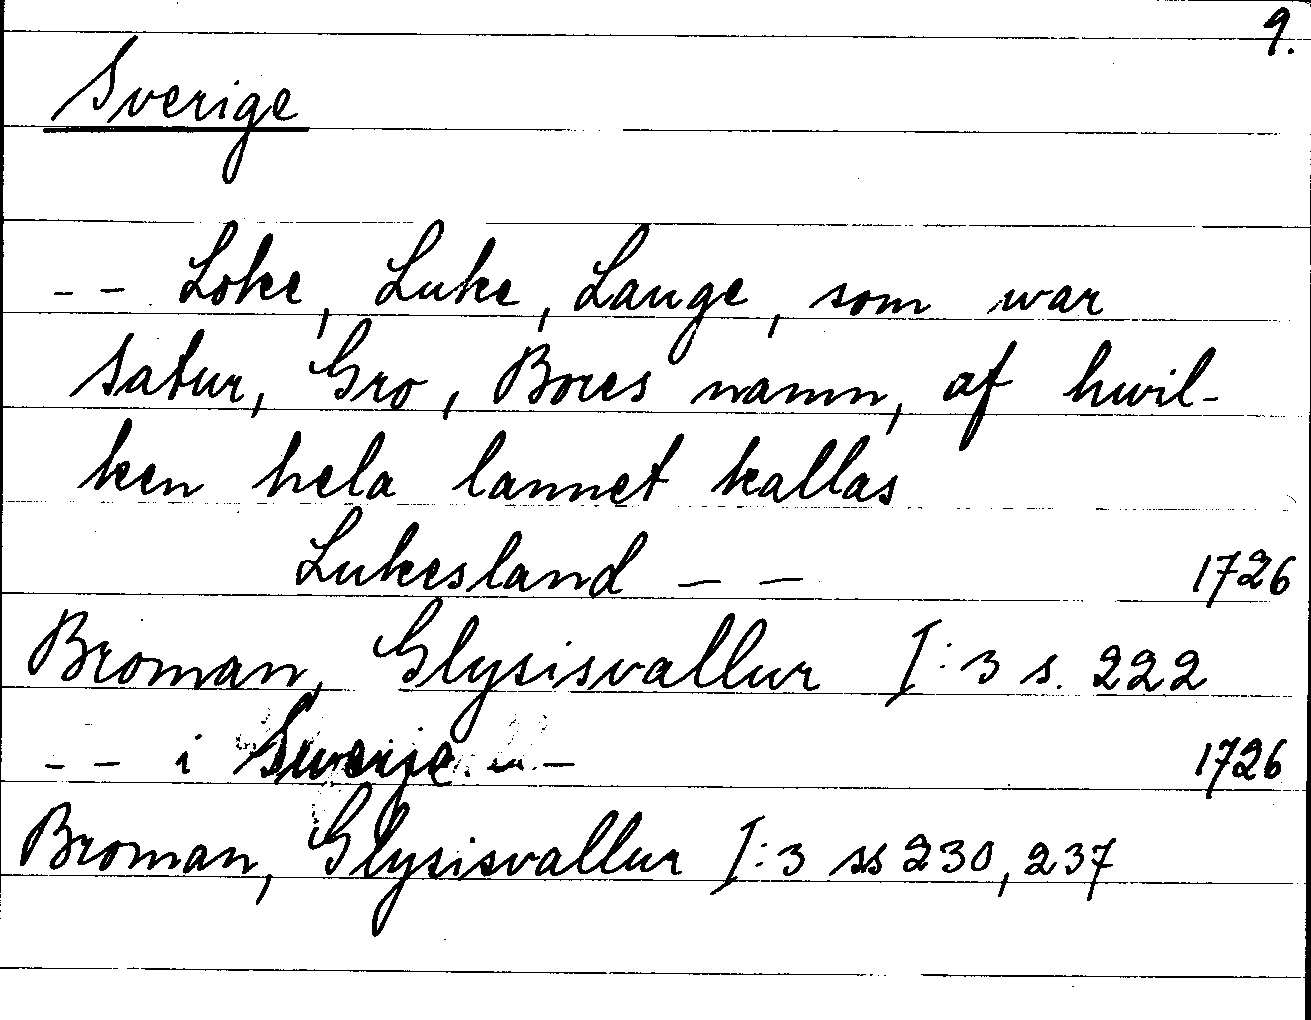 9.
Sverige
- - Loke, Luke, Lauge, som war
Satur, Gro, Bores namn, af hwil-
ken hela lannet kallas
Lukesland - - 1726
Broman, Glysisvallur I:3 s. 222
- - i Swerje - - 1726
Broman, Glysisvallur I:3 ss 230, 237